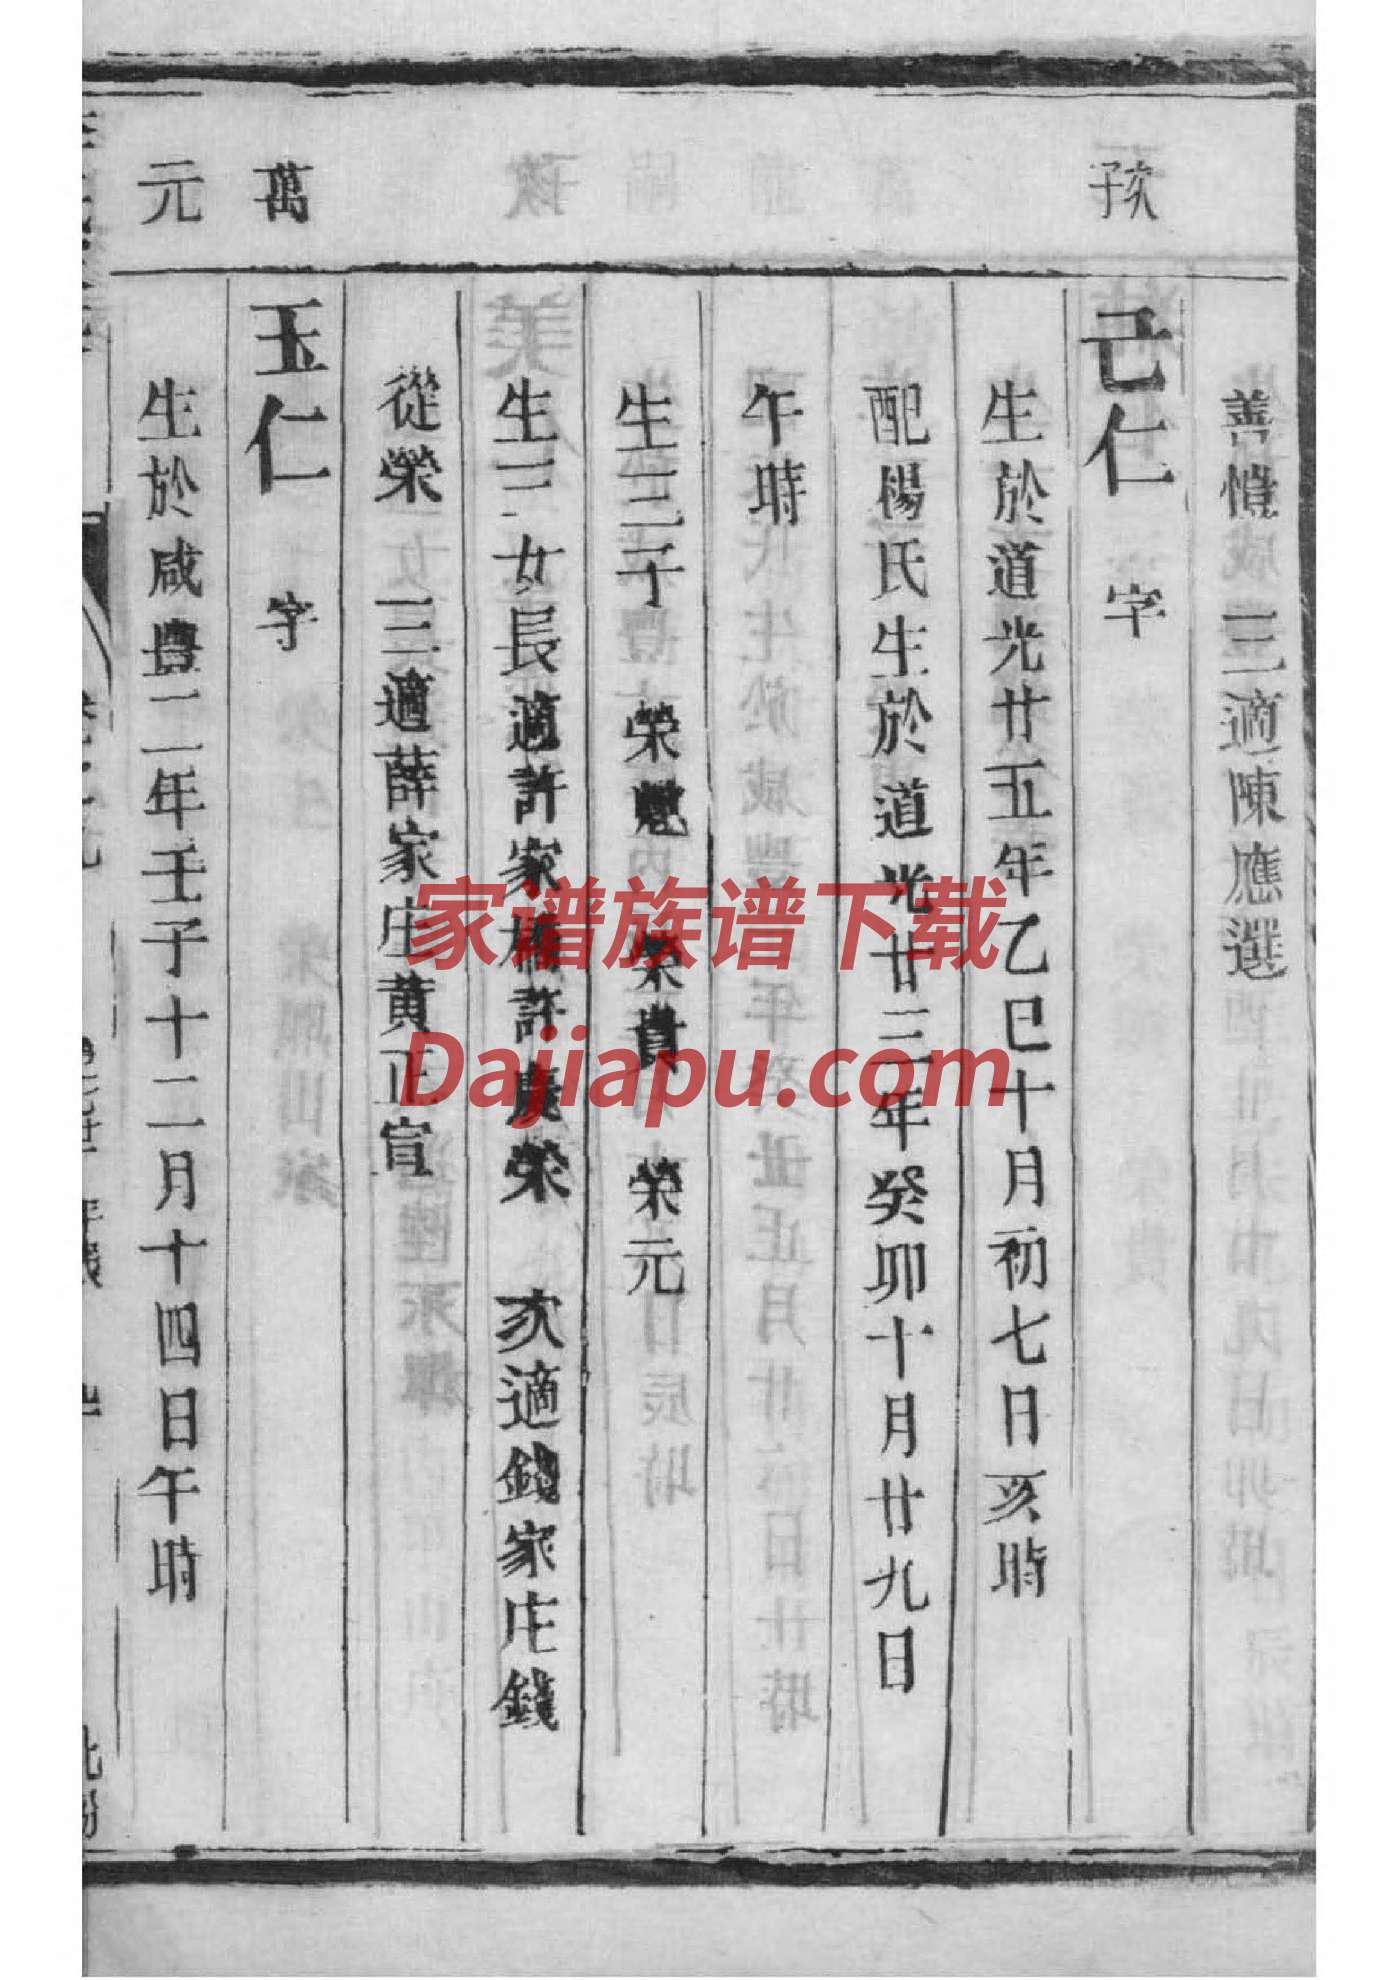 善愷 三適陳應選
孩
己仁 字
生於道光廿五年乙巳十月初七日亥時
配楊氏生於道光廿三年癸卯十月廿九日
午時
生三子 榮魁 榮貴 榮元
生三女長適許家 許慶榮 次適錢家庄錢
從榮 三適薛家庄黃正宣
萬
玉仁 字
元
生於咸豊二年壬子十二月十四日午時
家谱族谱下载
Dajiapu.com